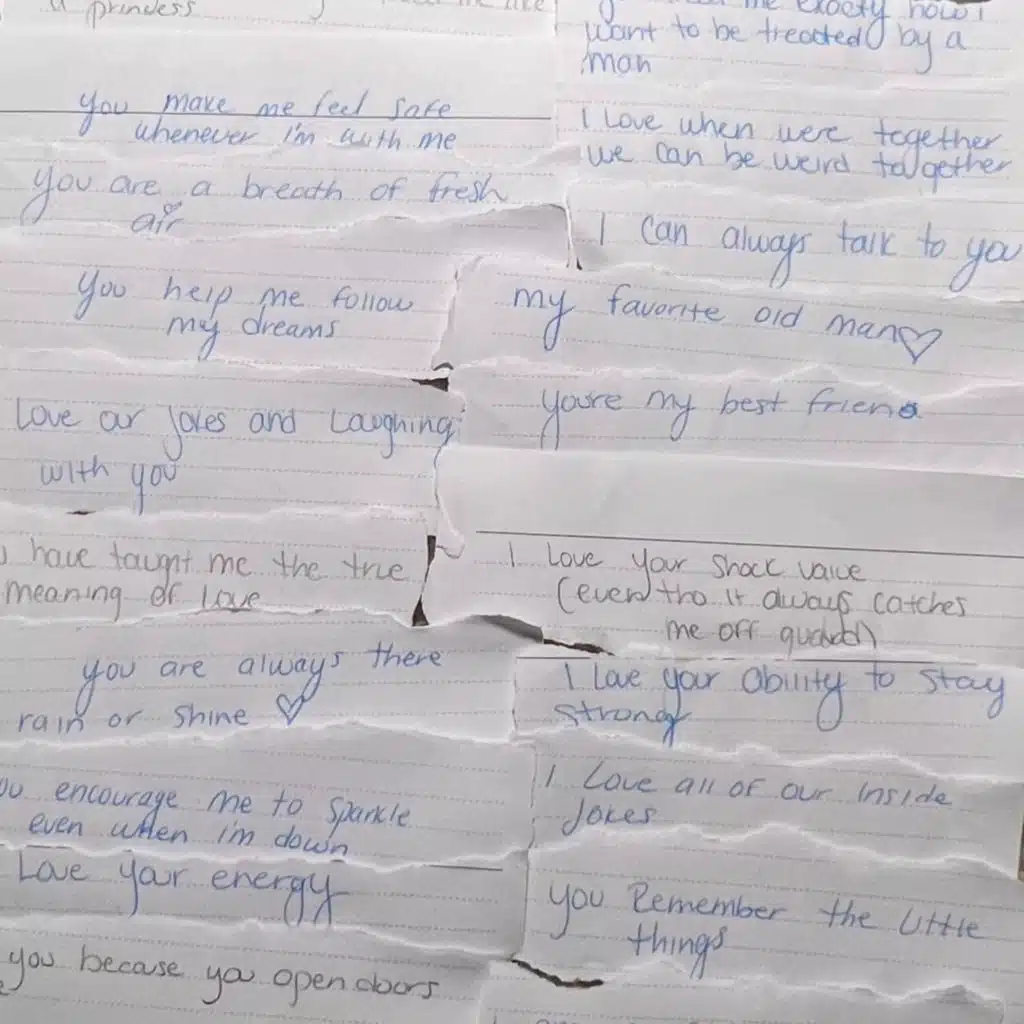 a princess
you make me feel safe
whenever i'm with me
you are a breath of fresh
air
you help me follow
my dreams
Love our jokes and Laughing
with you
have taught me the true
meaning of Love
you are always there
rain or shine ♡
encourage me to sparkle
even when i'm down
Love your energy
you because you open doors
me exactly how i
want to be treated by a
man
I Love when were together
we can be weird together
I can always talk to you
my favorite old man ♡
youre my best friend
I Love your Shock value
(even tho it always catches
me off guard)
I Love your ability to stay
strong
I Love all of our inside
Jokes
you Remember the Little
things